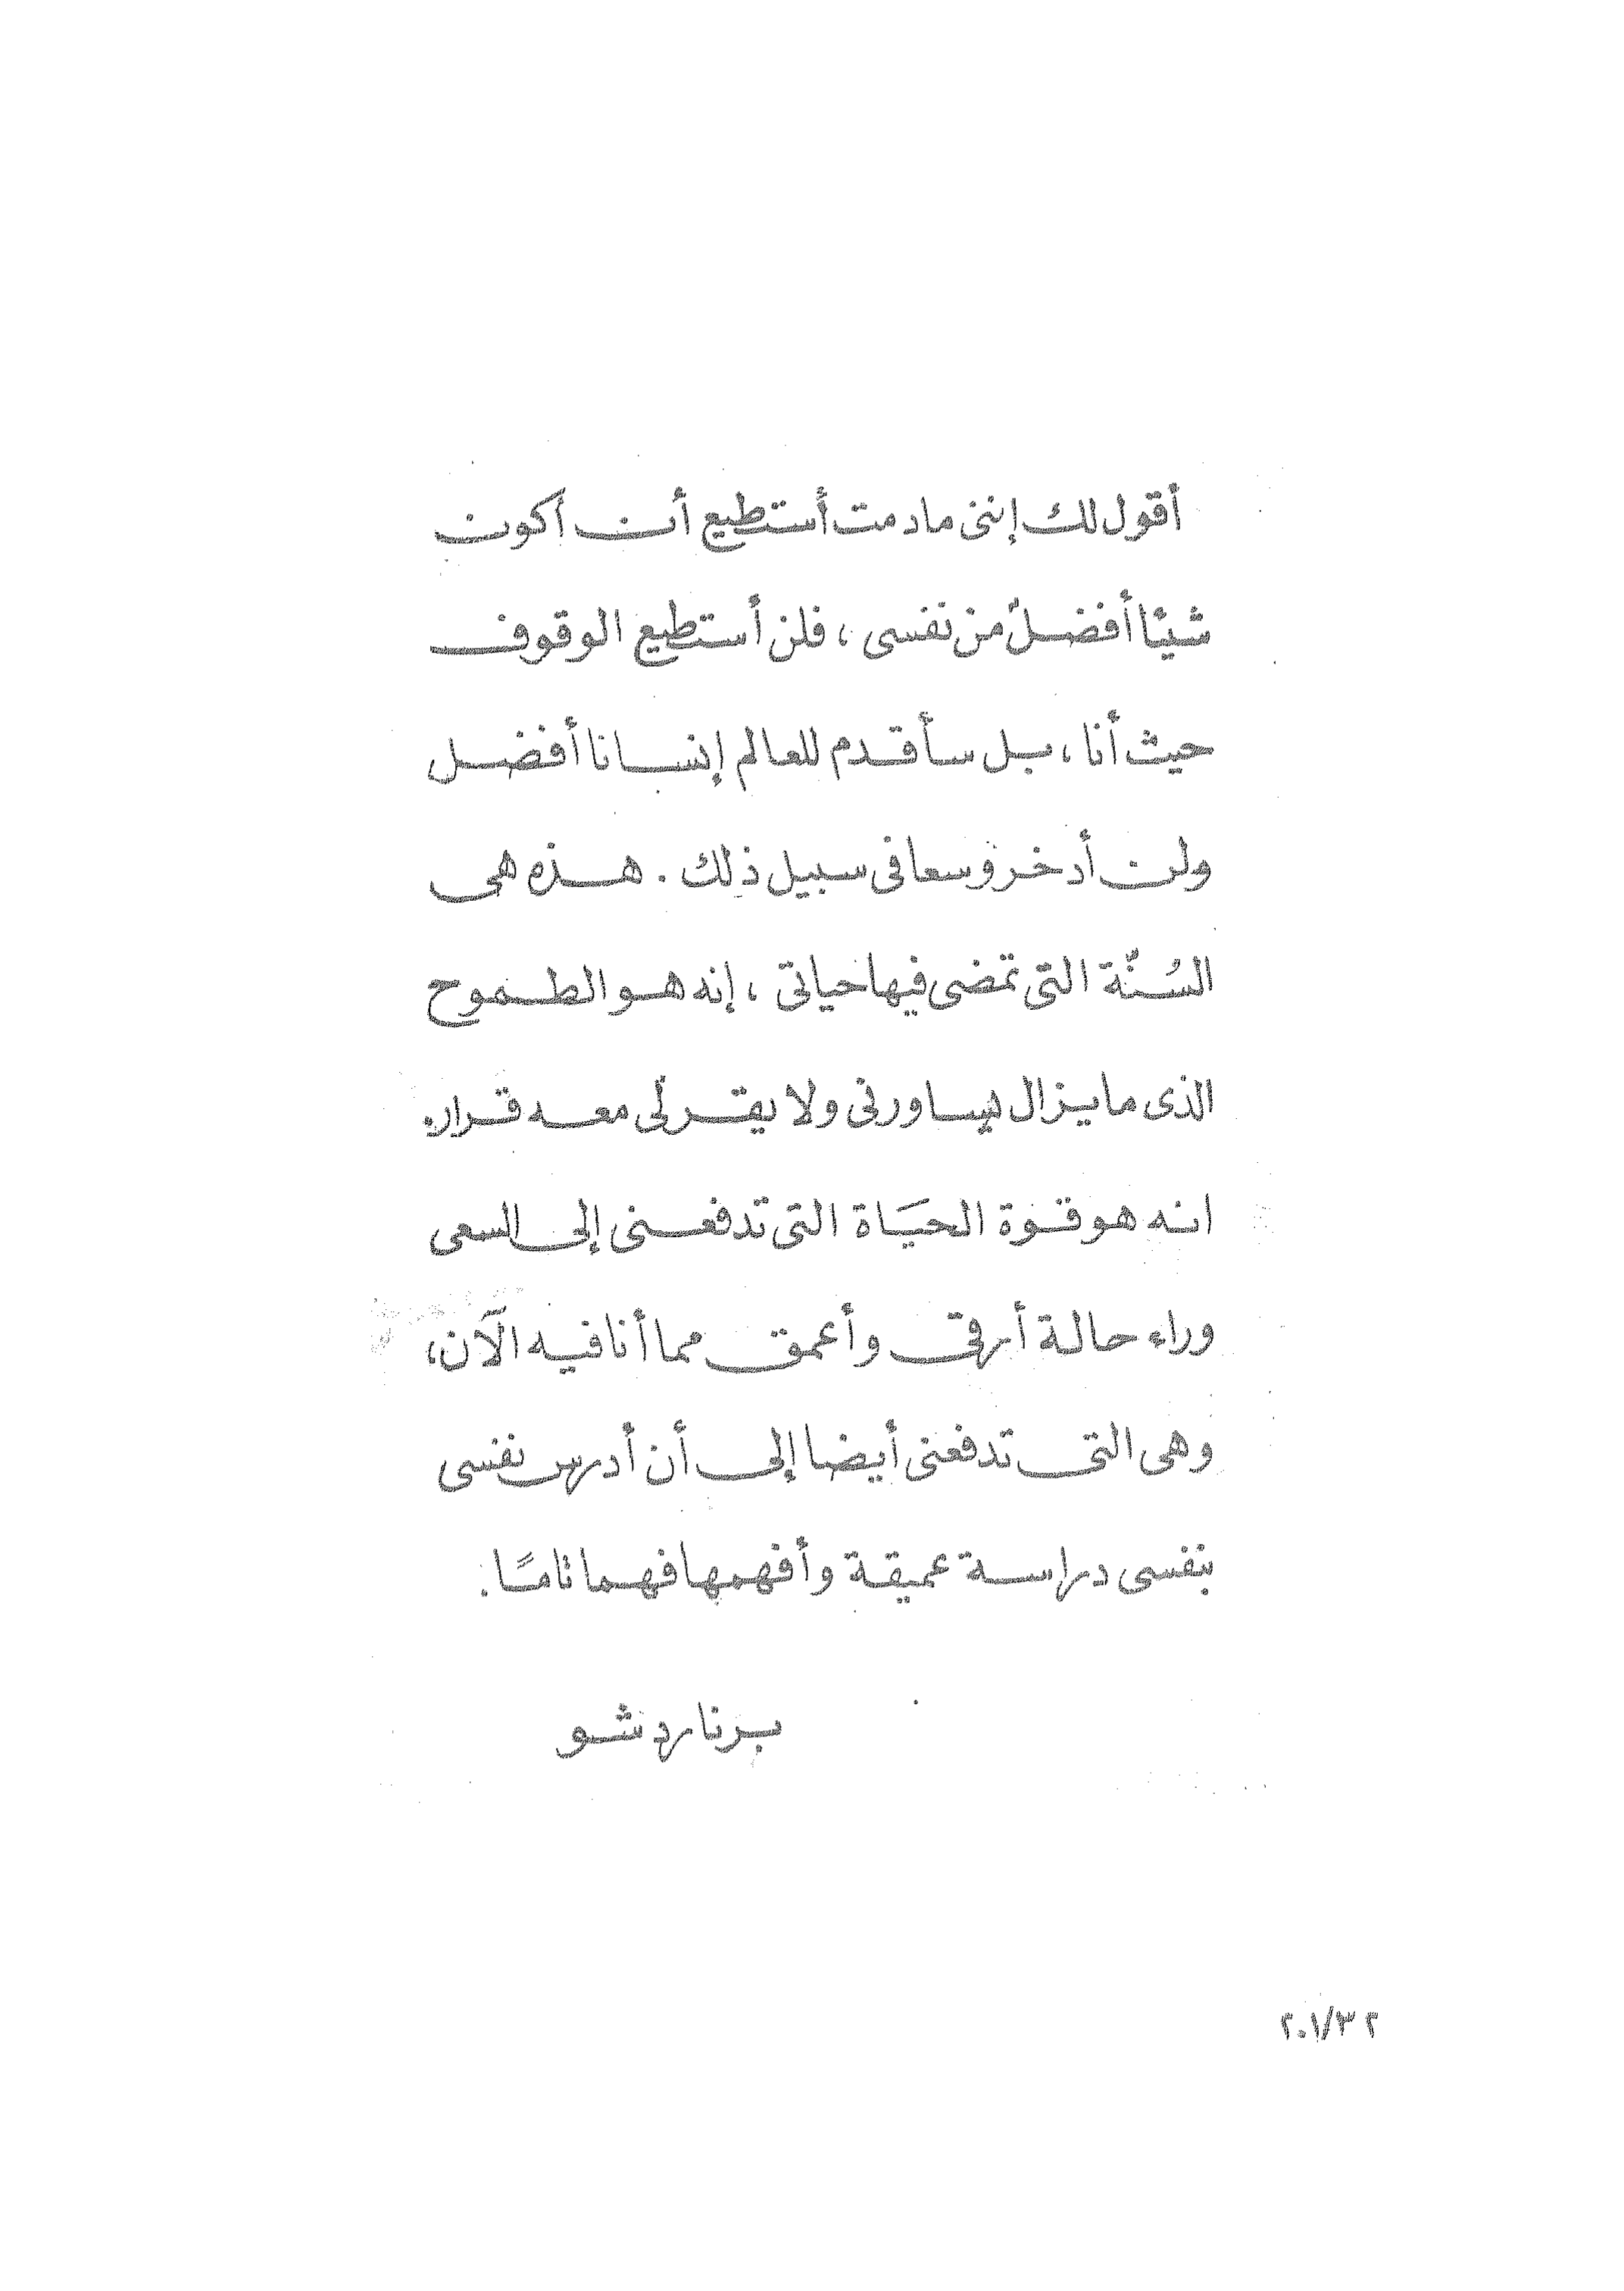 أقول لك إننى مادمت أستطيع أن أكون
شيئا أفضل من نفسى ، فلن أستطيع الوقوف
حيث أنا ، بل سأقدم للعالم إنسانا أفضل
ولن أدخر وسعا فى سبيل ذلك . هذه هى
السُنّة التى تمضى فيها حياتى ، إنه هو الطموح
الذى ما يزال يساورنى ولا يقر لى معه قرار.
انه هو قوة الحيَاة التى تدفعنى إلى السعى
وراء حالة أرقى وأعمق مما أنا فيه الآن،
وهى التى تدفعنى أيضا إلى أن أدرس نفسى
بنفسى دراسة عميقة وأفهمها فهما تامًا.
برنارد شو
٢٠١/٣٢